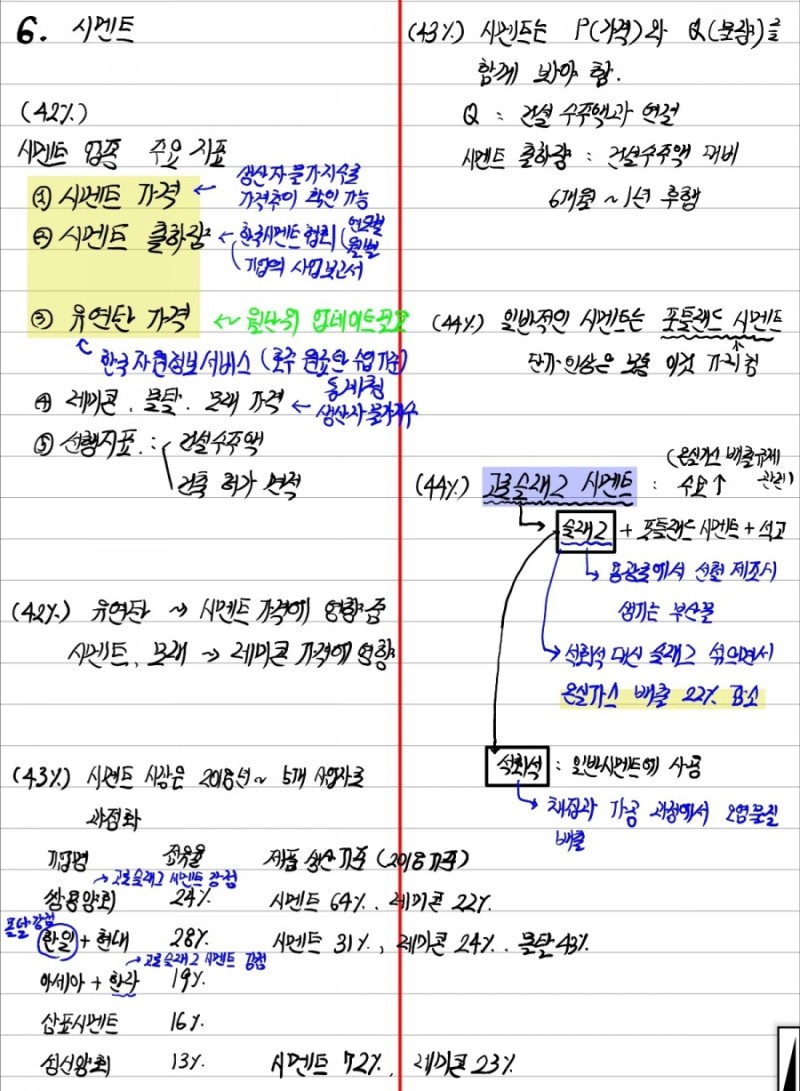 6. 시멘트
(42%)
시멘트 업종 주요 지표
① 시멘트 가격 ← 생산자물가지수로
가격추이 확인 가능
② 시멘트 출하량 ← 한국시멘트협회 (연도별
월별
기업의 사업보고서
③ 유연탄 가격 ← 월단위 업데이트
한국자원정보서비스 (호주 원료탄 수입 기준)
동시형
④ 레미콘, 몰탈, 모래 가격 ← 생산자물가지수
⑤ 선행지표 : 건설수주액
건축 허가 면적
(42%) 유연탄 → 시멘트 가격에 영향 줌
시멘트, 모래 → 레미콘 가격에 영향
(43%) 시멘트 시장은 2018년~ 5개 사업자로
과점화
기업명 점유율 제품 생산 기준 (2018 기준)
→ 고로슬래그 시멘트 강점
쌍용양회 24% 시멘트 64%, 레미콘 22%
몰탈 강점
한일 + 현대 28% 시멘트 31%, 레미콘 24%, 몰탈 43%
→ 고로슬래그 시멘트 강점
아세아 + 한라 19%
삼표시멘트 16%
성신양회 13% 시멘트 72%, 레미콘 23%
(43%) 시멘트는 P(가격)와 Q(물량)을
함께 봐야 함.
Q : 건설 수주액과 연결
시멘트 출하량 : 건설수주액 대비
6개월 ~ 1년 후행
(44%) 일반적인 시멘트는 포틀랜드 시멘트
단가 인상은 보통 이것 가리킴
(온실가스 배출규제
관련)
(44%) 고로슬래그 시멘트 : 수요↑
슬래그 + 포틀랜드 시멘트 + 석고
→ 용광로에서 선철 제조시
생기는 부산물
→ 석회석 대신 슬래그 섞으면서
온실가스 배출 22% 감소
석회석 : 일반시멘트에 사용
→ 채집과 가공 과정에서 오염물질
배출